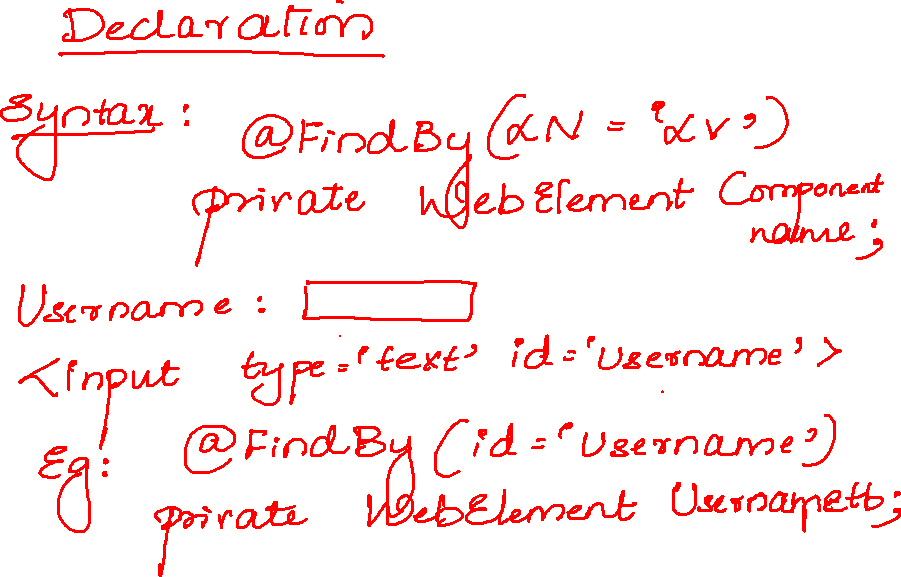 Declaration
Syntax : @FindBy(αN = 'αv')
private WebElement Component
name;
Username :
<input type='text' id='username'>
Eg: @FindBy(id='username')
private WebElement Usernametb;